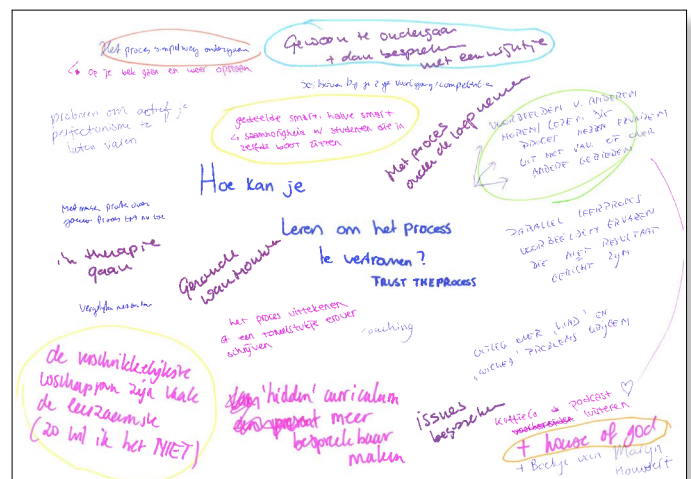 Het proces simpelweg ondergaan
↳ op je bek gaan en weer opstaan
Gewoon te ondergaan
+ dan bespreken
met een wijntje
proberen om actief je
perfectionisme te
laten varen
gedeelde smart, halve smart
↳ saamhorigheid w studenten die in
zelfde boot zitten
Het proces
onder de loep nemen
VOORBEELDEN V. ANDEREN
HOREN/LEZEN DIE
PROCES HEBBEN ERVAREN
UIT HET VAK OF OVER
ANDERE GEBIEDEN
Hoe kan je
Leren om het process
te vertrouwen?
TRUST THE PROCESS
in therapie
gaan
Gezonde
wantrouwen
PARALLEL LEERPROCES
VOORBEELDEN ERVAREN
DIE NIET RESULTAAT
GERICHT ZIJN
het proces uittekenen
of een toneelstukje erover
schrijven
coaching
UITLEG OVER "KIND" EN
"WICKED" PROBLEMS KRIJGEN
de verschrikkelijkste
zijn vaak
de leerzaamste
(zo wil ik het NIET)
'hidden' curriculum
meer
bespreekbaar
maken
issues
bespreken
PODCAST ♡
luisteren
+ house of god
+ Boekje van Marijn
Houwert